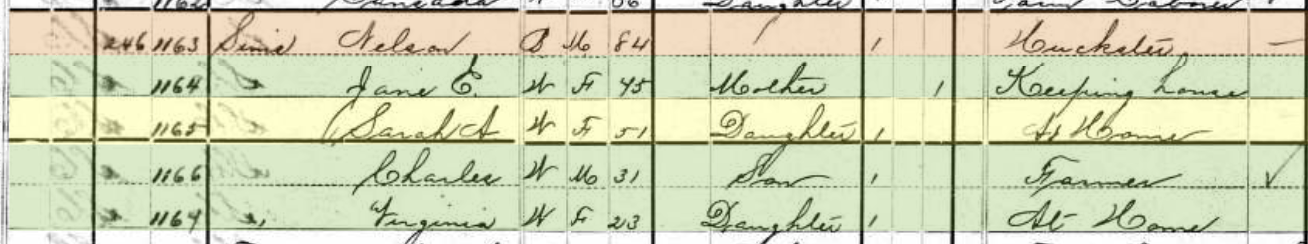 Daughter
246 1163 Sims Nelson B M 84 / 1 Huckster -
1164 " Jane E. W F 45 Mother 1 Keeping house
1165 " Sarah A W F 51 Daughter 1 At Home
1166 " Charles W M 31 Son 1 Farmer ✓
1164 " Virginia W F 23 Daughter 1 At Home